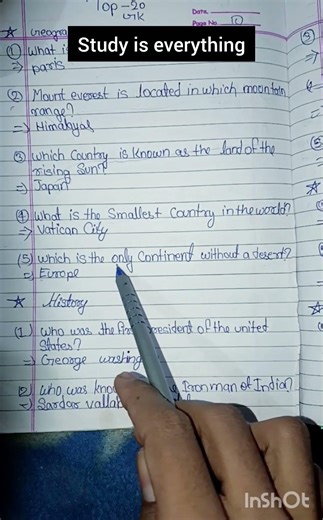 Top-20
Date.
Page No. 10
Study is everything
(1) What is
⇒ paris
(2) Mount everest is located in which mountain
range?
⇒ Himalyas
(3) Which Country is known as the land of the
rising Sun?
⇒ Japan
(4) What is the Smallest Country in the world?
⇒ Vatican City
(5) Which is the only Continent without a desert?
⇒ Europe
★ History
(1) Who was the president of the united
States?
⇒ George washing
(2) Who was Iron man of India?
⇒ Sardar
InShOt